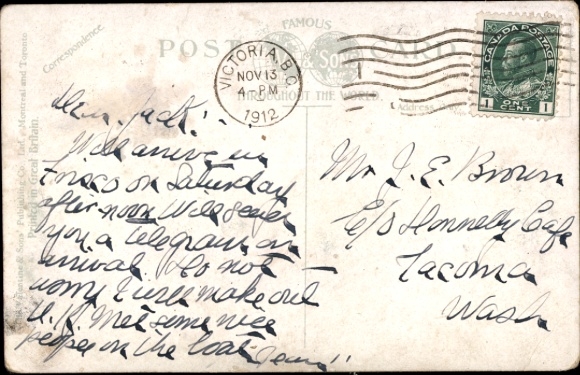 FAMOUS
POST CARD
& Sons
THROUGHOUT THE WORLD
Correspondence.
Address Only
Valentine & Sons' Publishing Co., Ltd., Montreal and Toronto
Printed in Great Britain.
VICTORIA, B.C.
NOV 13
4 - PM
1912
CANADA POSTAGE
1 1
ONE
CENT
Dear Jack:-
Will arrive in
Frisco on Saturday
afternoon Will send
you a telegram on
arrival. Do not
worry I will make out
O.K. Met some nice
people on the boat
Mr J. E. Brown
c/o Donnelly Cafe
Tacoma
Wash